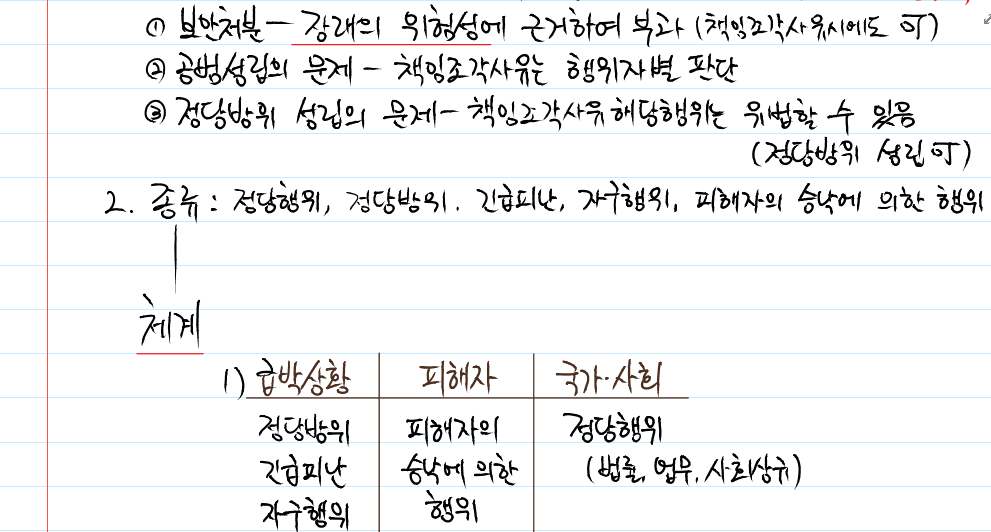 ① 보안처분 — 장래의 위험성에 근거하여 부과 (책임조각사유시에도 可)
② 공범성립의 문제 - 책임조각사유는 행위자별 판단
③ 정당방위 성립의 문제 - 책임조각사유 해당행위는 위법할 수 있음
(정당방위 성립 可)
2. 종류 : 정당행위, 정당방위. 긴급피난, 자구행위, 피해자의 승낙에 의한 행위
체계
1) 급박상황 피해자 국가·사회
정당방위 피해자의 정당행위
긴급피난 승낙에 의한 (법률, 업무, 사회상규)
자구행위 행위